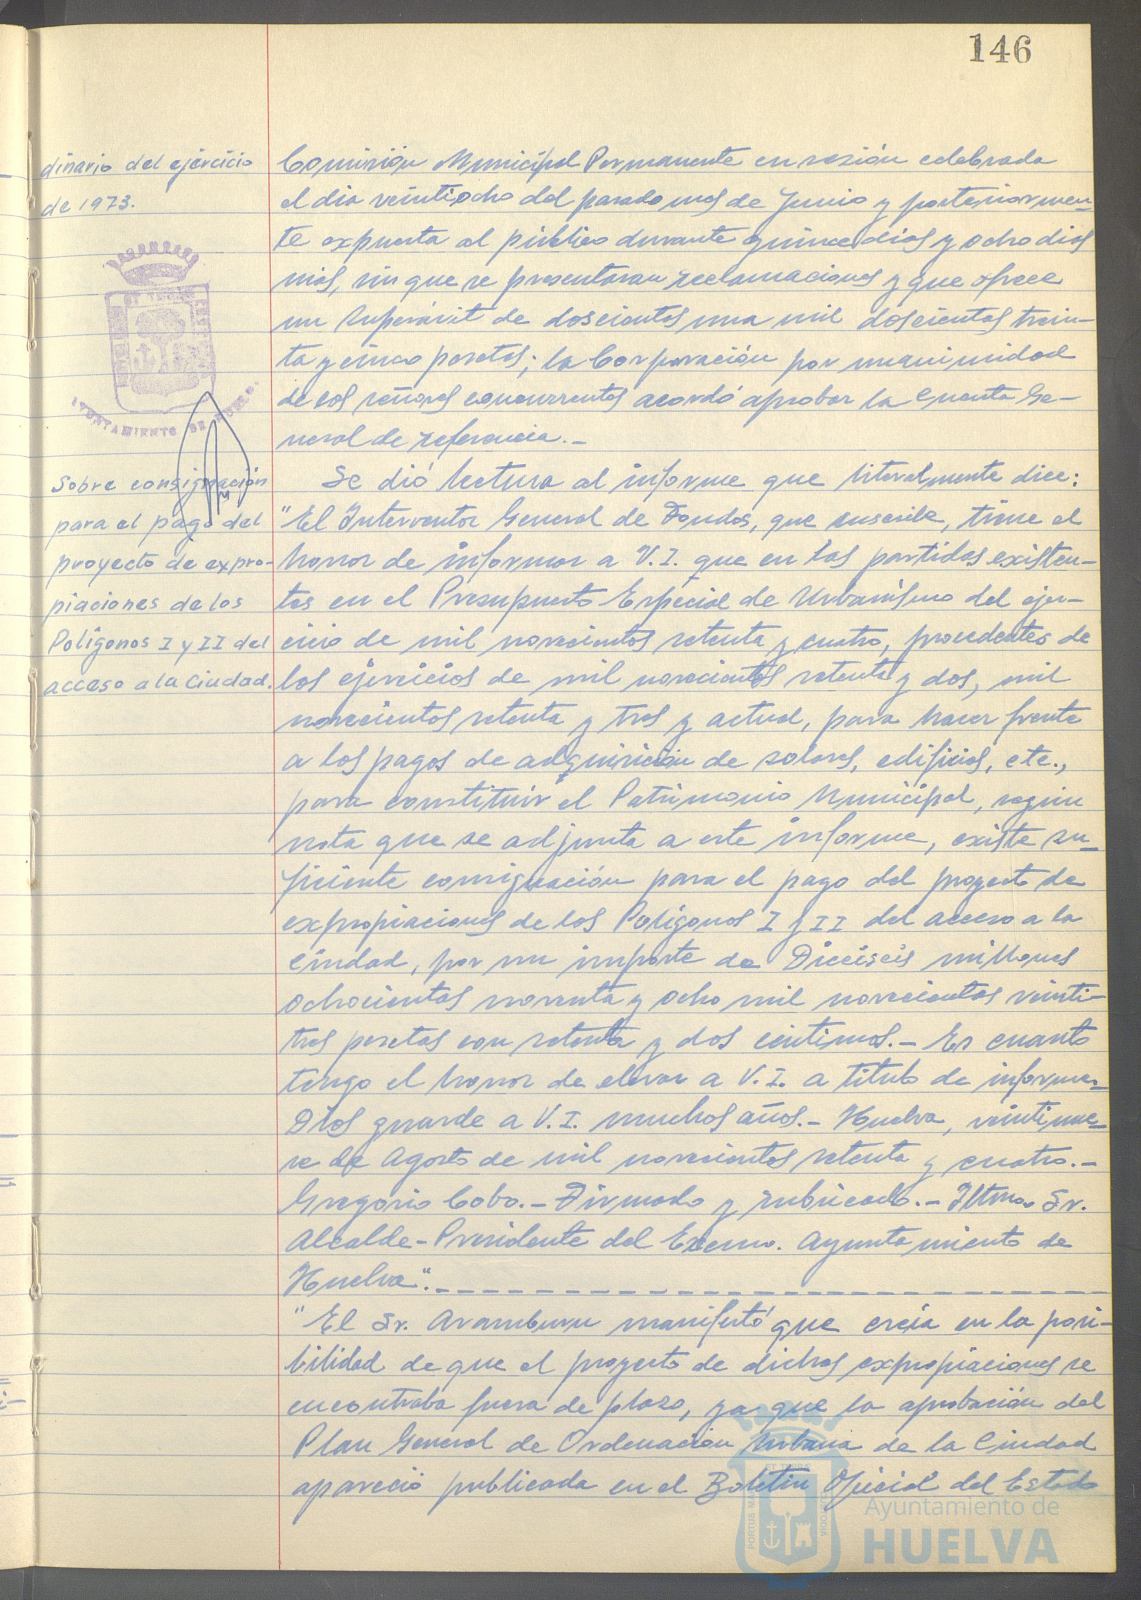 146
dinario del ejercicio
de 1973.
AYUNTAMIENTO DE HUELVA
Sobre consignación
para el pago del
proyecto de expro-
piaciones de los
Polígonos I y II del
acceso a la Ciudad.
Comisión Municipal Permanente en sesión celebrada
el dia veintiocho del pasado mes de Junio y posteriormen-
te expuesta al público durante quince dias y ocho dias
más, sin que se presentaran reclamaciones y que ofrece
un Superávit de doscientas una mil doscientas trein-
ta y cinco pesetas; la Corporación por unanimidad
de los señores concurrentes acordó aprobar la Cuenta Ge-
neral de referencia.-
Se dió lectura al informe que literalmente dice:
"El Interventor General de Fondos, que suscribe, tiene el
honor de informar a V.I. que en las partidas existen-
tes en el Presupuesto Especial de Urbanismo del ejer-
cicio de mil novecientos setenta y cuatro, procedentes de
los ejercicios de mil novecientos setenta y dos, mil
novecientos setenta y tres y actual, para hacer frente
a los pagos de adquisición de solares, edificios, etc.,
para constituir el Patrimonio Municipal, según
nota que se adjunta a este informe, existe su-
ficiente consignación para el pago del proyecto de
expropiaciones de los Polígonos I y II del acceso a la
Ciudad, por un importe de Dieciséis millones
ochocientas noventa y ocho mil novecientas veinti-
tres pesetas con setenta y dos céntimos.- Es cuanto
tengo el honor de elevar a V.I. a titulo de informe.
Dios guarde a V.I. muchos años.- Huelva, veintinue-
ve de Agosto de mil novecientos setenta y cuatro.-
Gregorio Cobo.- Firmado y rubricado.- Iltmo. Sr.
Alcalde-Presidente del Excmo. Ayuntamiento de
Huelva".-
"El Sr. Aramburu manifestó que creía en la posi-
bilidad de que el proyecto de dichas expropiaciones se
encontraba fuera de plazo, ya que la aprobación del
Plan General de Ordenación Urbana de la Ciudad
apareció publicada en el Boletín Oficial del Estado
Ayuntamiento de
HUELVA